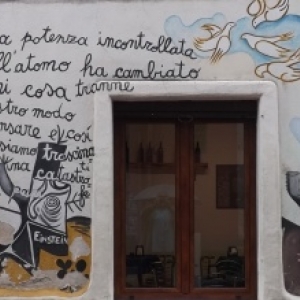 a potenza incontrollata
ll'atomo ha cambiato
i cosa tranne
stro modo
ensare e così
siamo trascina
ina
EINSTEIN